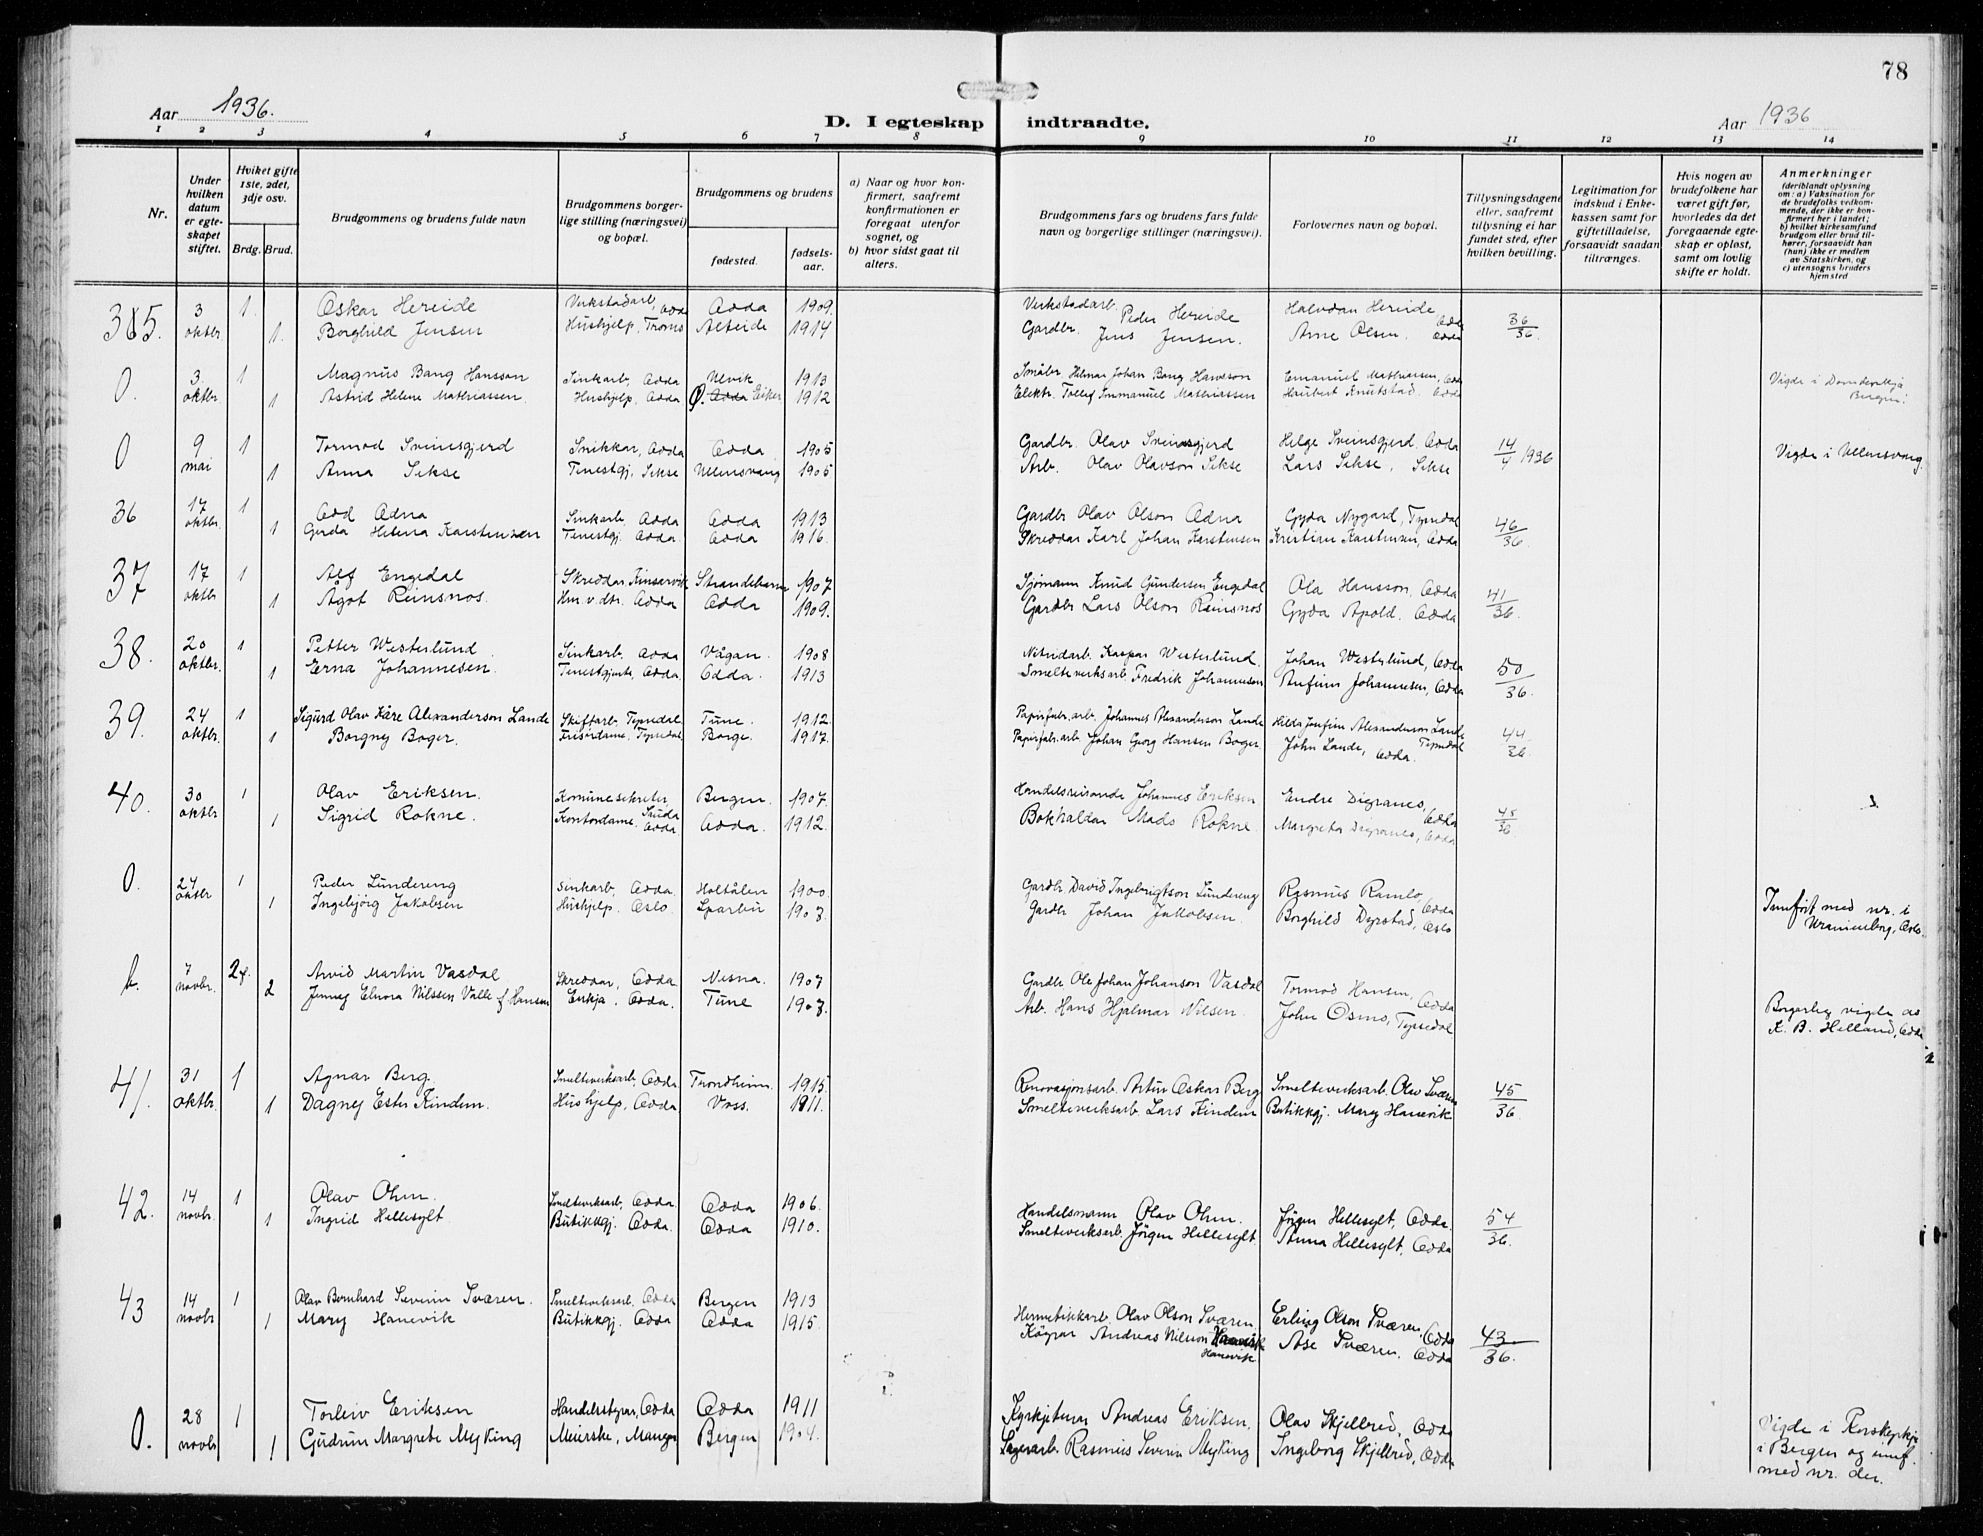 78
Aar 1936.
D. I egteskap indtraadte.
Aar 1936
1 2 3 4 5 6 7 8 9 10 11 12 13 14
Nr.
Under hvilken datum er egteskapet stiftet.
Hviket gifte 1ste, 2det, 3dje osv.
Brdg. Brud.
Brudgommens og brudens fulde navn
Brudgommens borgerlige stilling (næringsvei) og bopæl.
Brudgommens og brudens
fødested.
fødselsaar.
a) Naar og hvor konfirmert, saafremt konfirmationen er foregaat utenfor sognet, og
b) hvor sidst gaat til alters.
Brudgommens fars og brudens fars fulde navn og borgerlige stillinger (næringsvei).
Forlovernes navn og bopæl.
Tillysningsdagene eller, saafremt tillysning ei har fundet sted, efter hvilken bevilling.
Legitimation for indskud i Enkekassen samt for giftetilladelse, forsaavidt saadan tiltrænges.
Hvis nogen av brudefolkene har været gift før, hvorledes da det foregaaende egteskap er opløst, samt om lovlig skifte er holdt.
Anmerkninger (deriblandt oplysning om: a) Vaksination for de brudefolks vedkommende, der ikke er konfirmert her i landet; b) hvilket kirkesamfund brudgom eller brud tilhører, forsaavidt han (hun) ikke er medlem av Statskirken, og c) utensogns bruders hjemsted
365. 3 oktbr 1. Oskar Hereide Verkstadarb. Odda Odda 1909. Verkstadarb. Peder Hereide Halvdan Hereide Odda 36/36.
1. Borghild Jensen Hushjelp, Troms Alteide 1914 Gardbr. Jens Jensen. Arne Olsen. Odda
0. 3. oktbr 1 Magnus Bang Hansson Sinkarb, Odda Ulvik 1913 Småbr Helmar Johan Bang Hansson Emanuel Mathiassen, Odda Vigde i Domkerkja Bergen.
1 Astrid Helene Mathiassen. Hushjelp, Odda Ø. Eiker 1912 Elektr. Tollef Immanuel Mathiassen Haubert Knutstad. Odda
0 9 mai 1 Tormod Sveinsgjerd Snikkar, Odda Odda 1905 Gardbr. Olav Sveinsgjerd Helge Sveinsgjerd, Odda 14/4 1936 Vigde i Ullensvang.
1 Anna Sekse Tenestgj, Sekse Ullensvang 1905 Arb. Olav Olavson Sekse Lars Sekse, Sekse
36 17 oktbr. 1 Odd Odna Sinkarb, Odda Odda 1913 Gardbr Olav Olson Odna Gyda Nygard, Tyssedal 46/36.
1 Gerda Helena Karstensen Tenestgj. Odda. Odda 1916. Skreddar Karl Johan Karstensen Kristian Karstensen, Odda
37 17 oktbr 1 Alf Engedal Skreddar, Kinsarvik Strandebarm 1907 Sjømann Knud Gundersen Engedal Ola Hansson, Odda 41/36.
1 Agot Reinsnos. Hm. v. dtr. Odda Odda 1909. Gardbr Lars Olson Reinsnos Gyda Apold. Odda
38. 20 oktbr. 1 Petter Westerlund. Sinkarb. Odda Vågan. 1908 Nitridarb. Kaspar Westerlund. Johan Westerlund, Odda 50/36.
1 Erna Johannesen. Tenestgjente, Odda. Odda. 1913 Smelteverksarb. Fredrik Johannesen Anfinn Johannesen, Odda
39. 24 oktbr. 1 Sigurd Olav Kåre Alexanderson Lande Skiftarb. Tyssedal Tune. 1912. Papirfabr.arb. Johannes Alexanderson Lande Hilda Josefine Alexanderson Lande Tyssedal 44/36
1 Borgny Boger. Frisørdame, Tyssedal Borge. 1917. Papirfabr.arb. Johan Georg Hansen Boger. John Lande, Odda.
40. 30 oktbr 1 Olav Eriksen. Komunesekretær Skuda Bergen. 1907. Handelsreisande Johannes Eriksen Endre Digranes, Odda 45/36
1 Sigrid Rokne. Kontordame. Odda Odda. 1912. Bokhaldar Mads Rokne. Margreta Digranes, Odda
0. 24 oktbr 1 Peder Lundereng Sinkarb, Odda. Holtålen 1900. Gardbr. David Ingebrigtson Lundereng Rasmus Ramlo, Odda Innført med nr. i Uranienborg, Oslo.
1 Ingebjörg Jakobsen Hushjelp. Oslo. Sparbu 1903. Gardbr Johan Jakobsen. Borghild Dyrstad, Oslo
b. 7 novbr. 2 f. Arvid Martin Vasdal Skreddar, Odda Nesna. 1907 Gardbr Ole Johan Johanson Vasdal Tormod Hansen, Odda Borgarleg vigde av K. B. Helland, Odda
2 Jenney Elnora Nilssen Valle f. Hansen Enkja. Odda. Tune 1903. Arb. Hans Hjalmar Nilsen. John Osmo, Tyssedal
41. 31 oktbr. 1 Agnar Berg. Smelteverksarb, Odda. Trondheim. 1915. Renovasjonsarb. Artur Oskar Berg Smelteverksarb. Olav Sværen 45/36.
1 Dagney Ester Kindem. Hushjelp, Odda Voss. 1911. Smelteverksarb. Lars Kindem Butikkgj. Mary Hanevik
42. 14 novbr. 1 Olav Ohm. Smelteverksarb, Odda. Odda 1906. Handelsmann Olav Ohm. Jörgen Hellesylt, Odda. 54/36.
1 Ingrid Hellesylt Butikkgj. Odda. Odda 1910. Smelteverksarb. Jörgen Hellesylt Anna Hellesylt, Odda
43 14 novbr 1 Olav Bernhard Severin Sværen. Smelteverksarb. Odda Bergen 1913 Hermetikkarb. Olav Olson Sværen, Erling Olson Sværen, Odda 43/36.
1 Mary Hanevik Butikkgj. Odda Odda 1915. Andreas Nilsson Hanevik Åse Sværen. Odda
0. 28 novbr 1 Torleiv Eriksen Handelsstyrar, Odda Odda 1911 Kyrkjetenar Andreas Eriksen. Olav Skjellred, Odda Vigde i Korskyrkja i Bergen og innf. med nr. der.
1 Gudrun Margrete Myking Meierske, Manger Bergen 1904. Lagerarb. Rasmus Severin Myking Ingeborg Skjellred, Odda